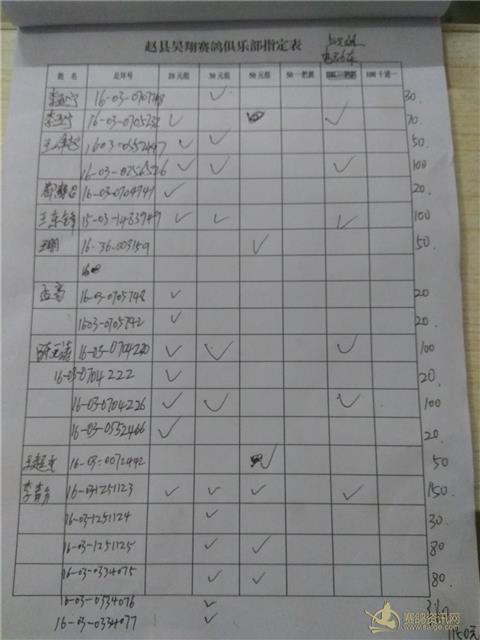 赵县昊翔赛鸽俱乐部指定表
姓名 足环号 20元组 30元组 50元组 50一把抓 100十送一
16-03-0707 ✓ 30.
16-03-0705232 ✓ ✓ 70
1603-0552497 ✓ ✓ 50
16-03-0256526 ✓ ✓ ✓ 100
16-03-0704747 ✓ 20
王东锋 15-03-1483749 ✓ ✓ ✓ 100
16-36-003159 ✓ 50
16
孟高 16-03-0705748 ✓ 20
1603-0705742 ✓ 20
16-03-0704220 ✓ ✓ ✓ 100
16-03-0704222 ✓ 20.
16-03-0704226 ✓ ✓ ✓ 100
16-03-0552466 ✓ 20
16-03-0072492 ✓ 50
16-03-1251123 ✓ ✓ ✓ ✓ 150
16-03-1251124 ✓ 30.
16-03-1251125 ✓ ✓ 80
16-03-0334075 ✓ ✓ 80.
16-03-0334076 ✓
16-03-0334077 ✓ 1150元
赛鸽资讯网
www.saige.com